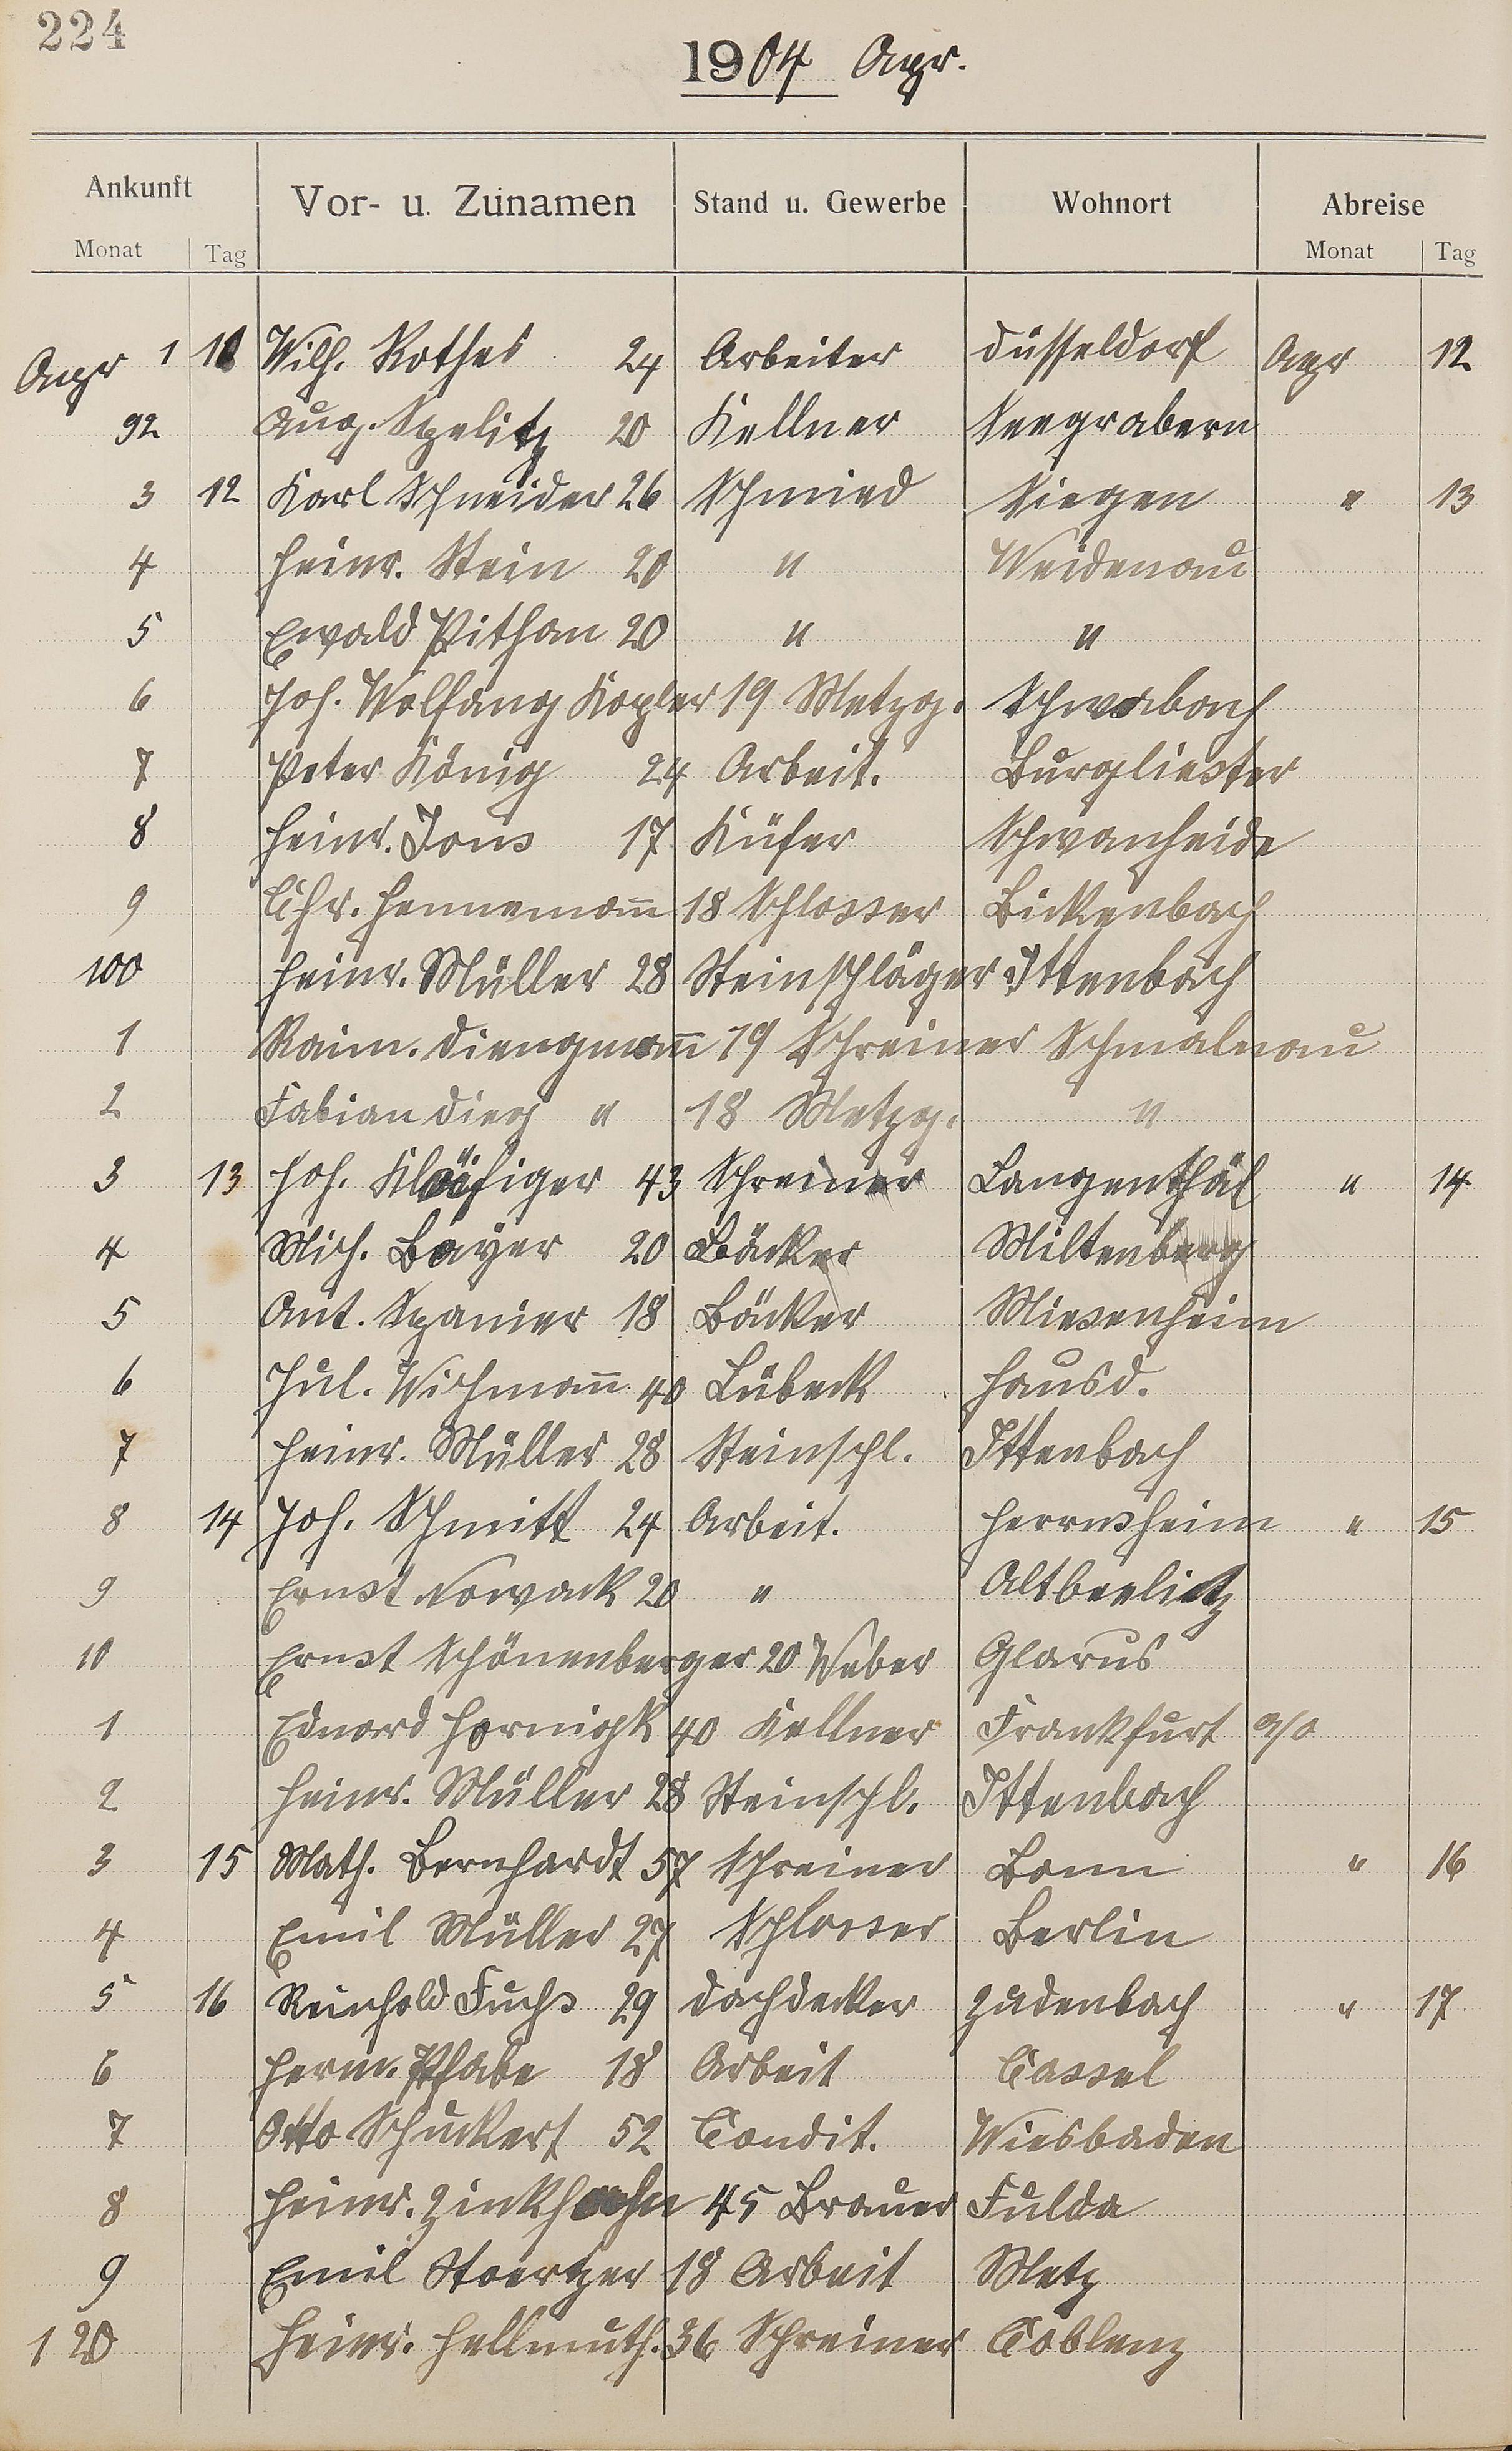 224
1904 Apr.
Ankunft Vor- u. Zunamen Stand u. Gewerbe Wohnort Abreise
Monat Tag Monat Tag
Apr 1 11 Wilh. Rothes 24 Arbeiter Düsseldorf Apr 12
92 Aug. Spelitz 20 Kellner Seegrabern
3 12 Karl Schneider 26 Schmied Siegen " 13
4 Heinr. Stein 20 " Weidenau
5 Ewald Pithan 20 " "
6 Joh. Wolfang Kopler 19 Metzg. Schwabach
7 Peter König 24 Arbeit. Burgliester
8 Heinr. Jons 17 Küfer Schwanheide
9 Chr. Hennemann̄ 18 Schlosser Bickenbach
100 Heinr. Müller 28 Steinschläger Ittenbach
1 Raim. Diengmann̄ 19 Schreiner Schmalnau
2 Fabian Dieg " 18 Metzg. "
3 13 Joh. Kläfiger 43 Schreiner Langenthal " 14
4 Mich. Bayer 20 Bäcker Miltenberg
5 Ant. Spanier 18 Bäcker Miesenheim
6 Jul. Wichmann̄ 40 Lübeck Hausd.
7 Heinr. Müller 28 Steinschl. Ittenbach
8 14 Joh. Schmitt 24 Arbeit. Herrnsheim " 15
9 Ernst Nowack 20 " Altbeelitz
10 Ernst Schönenberger 20 Weber Glarus
1 Eduard Hornigk 40 Kellner Frankfurt a/o
2 Heinr. Müller 28 Steinschl. Ittenbach
3 15 Math. Bernhardt 57 Schreiner Bonn " 16
4 Emil Müller 27 Schlosser Berlin
5 16 Reinhold Fuchs 29 Dachdecker Judenbach " 17
6 Herm. Pfabe 18 Arbeit Cassel
7 Otto Schuckert 52 Condit. Wiesbaden
8 Heinr. Zinkhahn 45 Brauer Fulda
9 Emil Stoertzer 18 Arbeit Metz
120 Heinr. Hellmuth. 36 Schreiner Coblenz